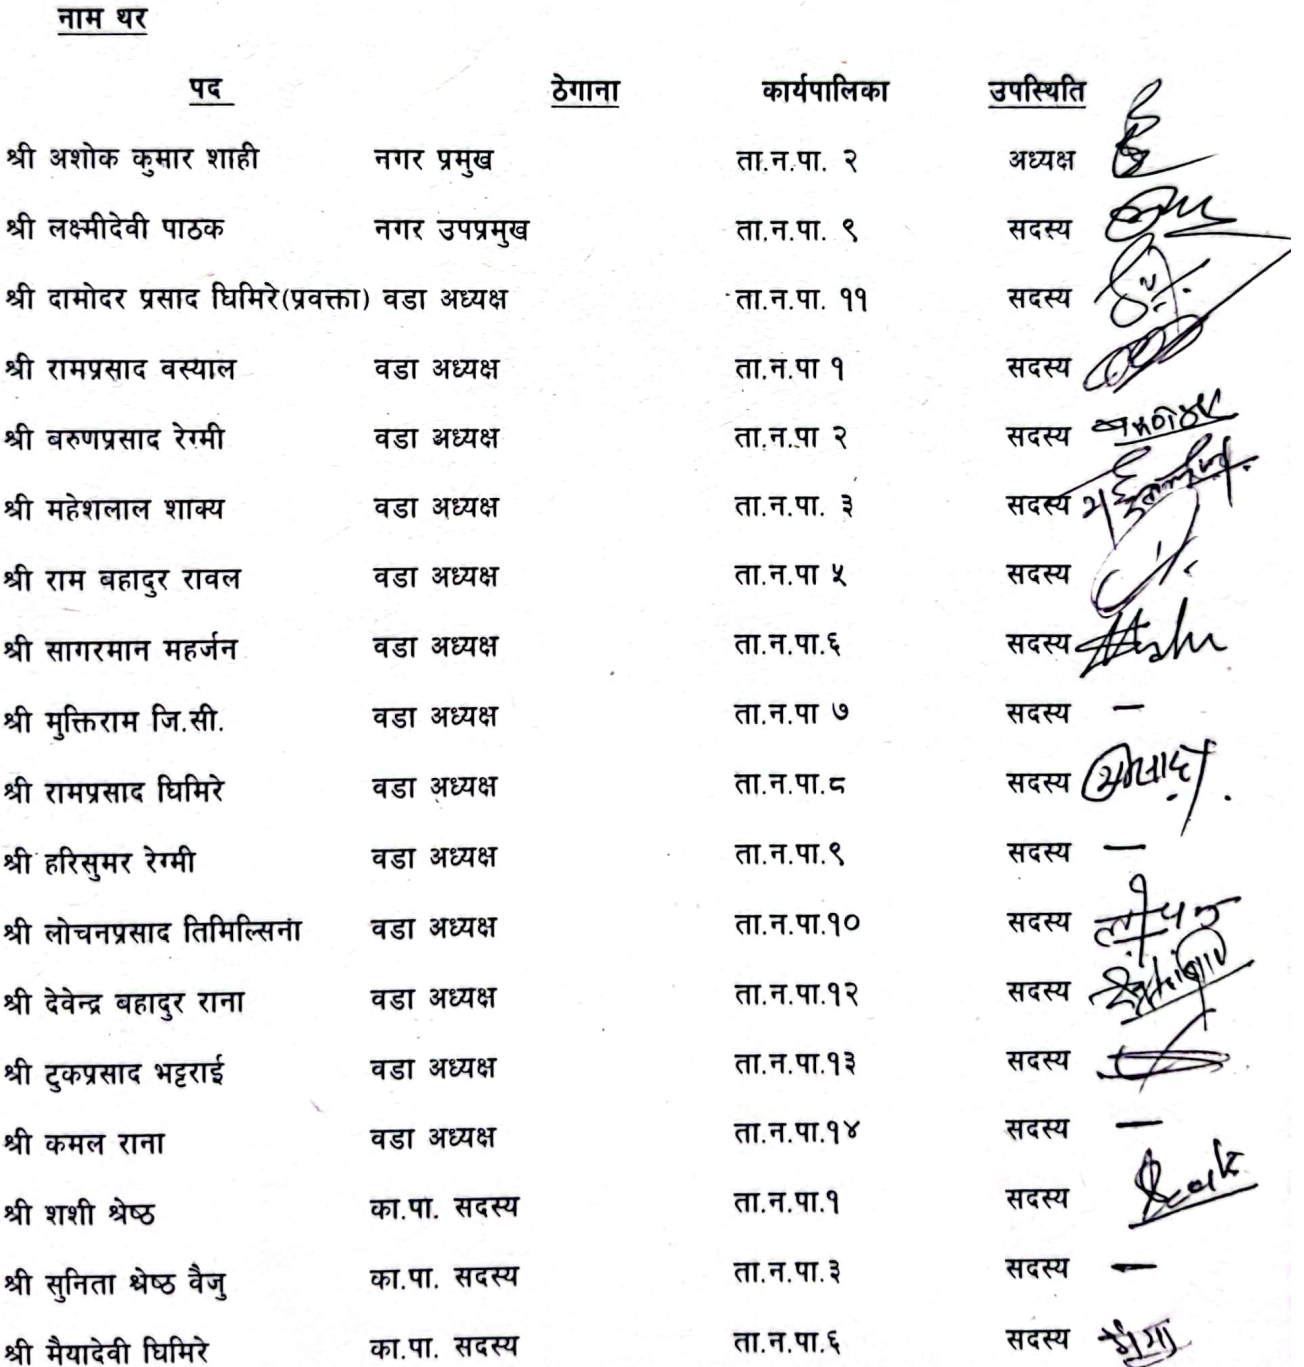 नाम थर
पद ठेगाना कार्यपालिका उपस्थिति
श्री अशोक कुमार शाही नगर प्रमुख ता.न.पा. २ अध्यक्ष
श्री लक्ष्मीदेवी पाठक नगर उपप्रमुख ता.न.पा. ९ सदस्य
श्री दामोदर प्रसाद घिमिरे(प्रवक्ता) वडा अध्यक्ष ता.न.पा. ११ सदस्य
श्री रामप्रसाद वस्याल वडा अध्यक्ष ता.न.पा १ सदस्य
श्री बरुणप्रसाद रेग्मी वडा अध्यक्ष ता.न.पा २ सदस्य
श्री महेशलाल शाक्य वडा अध्यक्ष ता.न.पा. ३ सदस्य
श्री राम बहादुर रावल वडा अध्यक्ष ता.न.पा ५ सदस्य
श्री सागरमान महर्जन वडा अध्यक्ष ता.न.पा.६ सदस्य
श्री मुक्तिराम जि.सी. वडा अध्यक्ष ता.न.पा ७ सदस्य –
श्री रामप्रसाद घिमिरे वडा अध्यक्ष ता.न.पा.८ सदस्य
श्री हरिसुमर रेग्मी वडा अध्यक्ष ता.न.पा.९ सदस्य –
श्री लोचनप्रसाद तिमिल्सिना वडा अध्यक्ष ता.न.पा.१० सदस्य लोचन
श्री देवेन्द्र बहादुर राना वडा अध्यक्ष ता.न.पा.१२ सदस्य
श्री टुकप्रसाद भट्टराई वडा अध्यक्ष ता.न.पा.१३ सदस्य
श्री कमल राना वडा अध्यक्ष ता.न.पा.१४ सदस्य –
श्री शशी श्रेष्ठ का.पा. सदस्य ता.न.पा.१ सदस्य
श्री सुनिता श्रेष्ठ वैजु का.पा. सदस्य ता.न.पा.३ सदस्य –
श्री मैयादेवी घिमिरे का.पा. सदस्य ता.न.पा.६ सदस्य